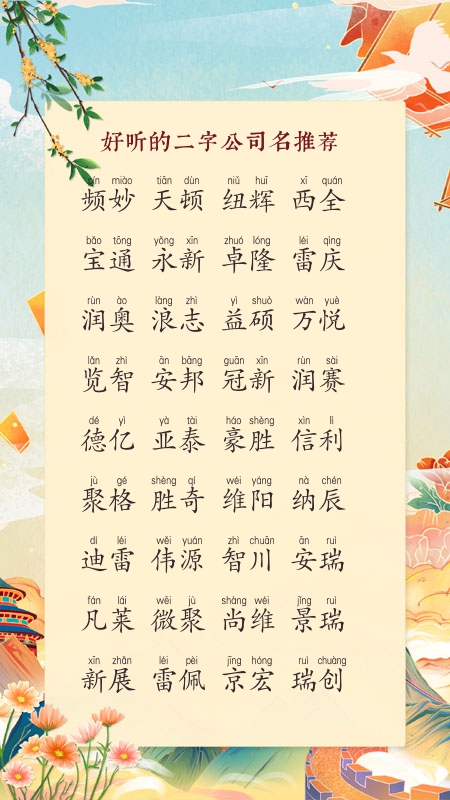 好听的二字公司名推荐
pín miào tiān dùn niǔ huī xī quán
频妙 天顿 纽辉 西全
bǎo tōng yǒng xīn zhuó lóng léi qìng
宝通 永新 卓隆 雷庆
rùn ào làng zhì yì shuò wàn yuè
润奥 浪志 益硕 万悦
lǎn zhì ān bāng guān xīn rùn sài
览智 安邦 冠新 润赛
dé yì yà tài háo shèng xìn lì
德亿 亚泰 豪胜 信利
jù gé shèng qí wéi yáng nà chén
聚格 胜奇 维阳 纳辰
dí léi wěi yuán zhì chuān ān ruì
迪雷 伟源 智川 安瑞
fán lái wēi jù shàng wéi jǐng ruì
凡莱 微聚 尚维 景瑞
xīn zhǎn léi pèi jīng hóng ruì chuàng
新展 雷佩 京宏 瑞创